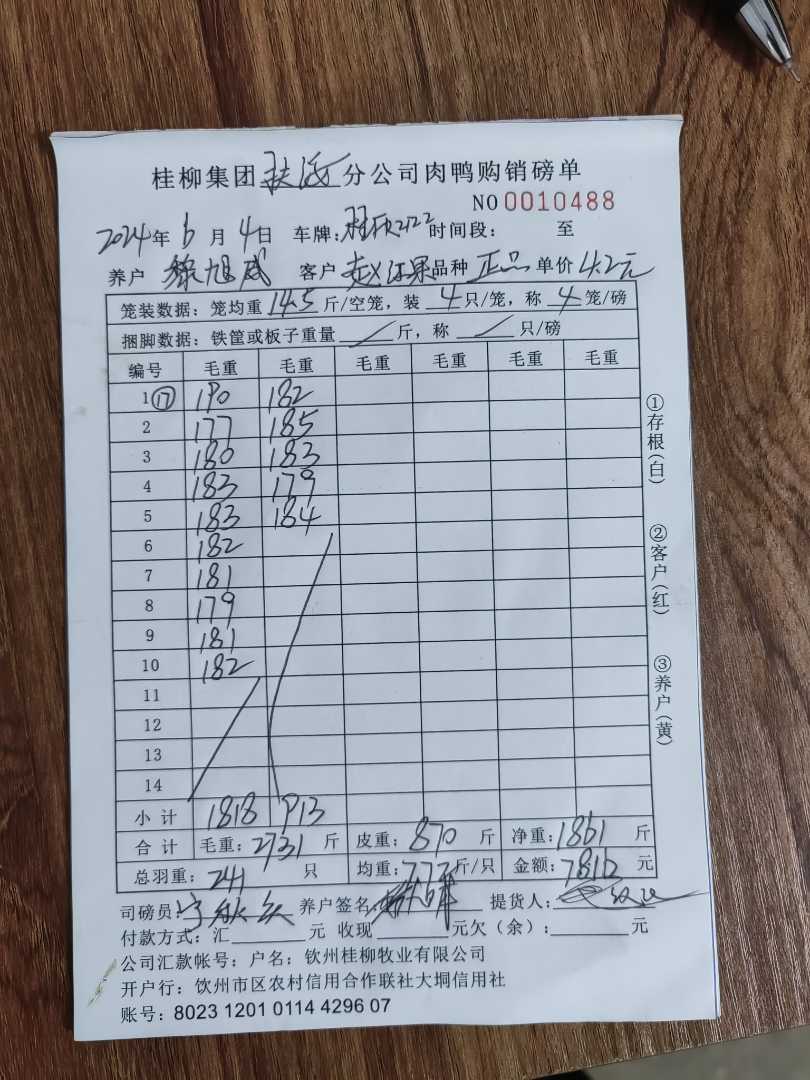 桂柳集团 分公司肉鸭购销磅单
NO 0010488
2024年6月4日 车牌:桂 2122 时间段: 至
养户 徐旭成 客户 赵江果 品种 正品 单价 4.2元
笼装数据: 笼均重 14.5 斤/空笼, 装 4 只/笼, 称 4 笼/磅
捆脚数据: 铁筐或板子重量 / 斤, 称 / 只/磅
编号 毛重 毛重 毛重 毛重 毛重 毛重
1 ⑰ 190 182
2 177 185
3 180 183
4 183 179
5 183 184
6 182
7 181
8 179
9 181
10 182
11
12
13
14
小计 1818 913
合计 毛重: 2731 斤 皮重: 870 斤 净重: 1861 斤
总羽重: 241 只 均重: 7.72 斤/只 金额: 7816 元
司磅员: 养户签名: 提货人:
付款方式: 汇 元 收现 元欠(余): 元
公司汇款帐号: 户名: 钦州桂柳牧业有限公司
开户行: 饮州市区农村信用合作联社大垌信用社
账号: 8023 1201 0114 4296 07
①存根(白)
②客户(红)
③养户(黄)